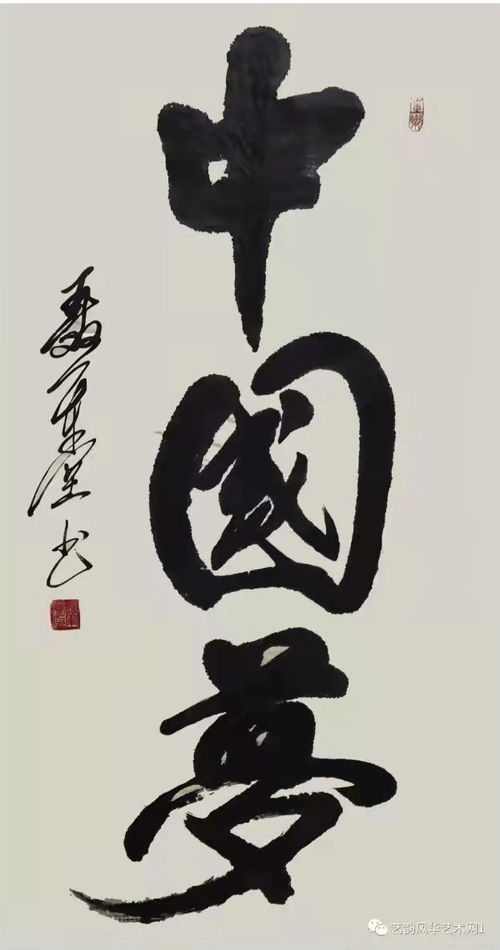 中國夢
书
艺韵风华艺术网1